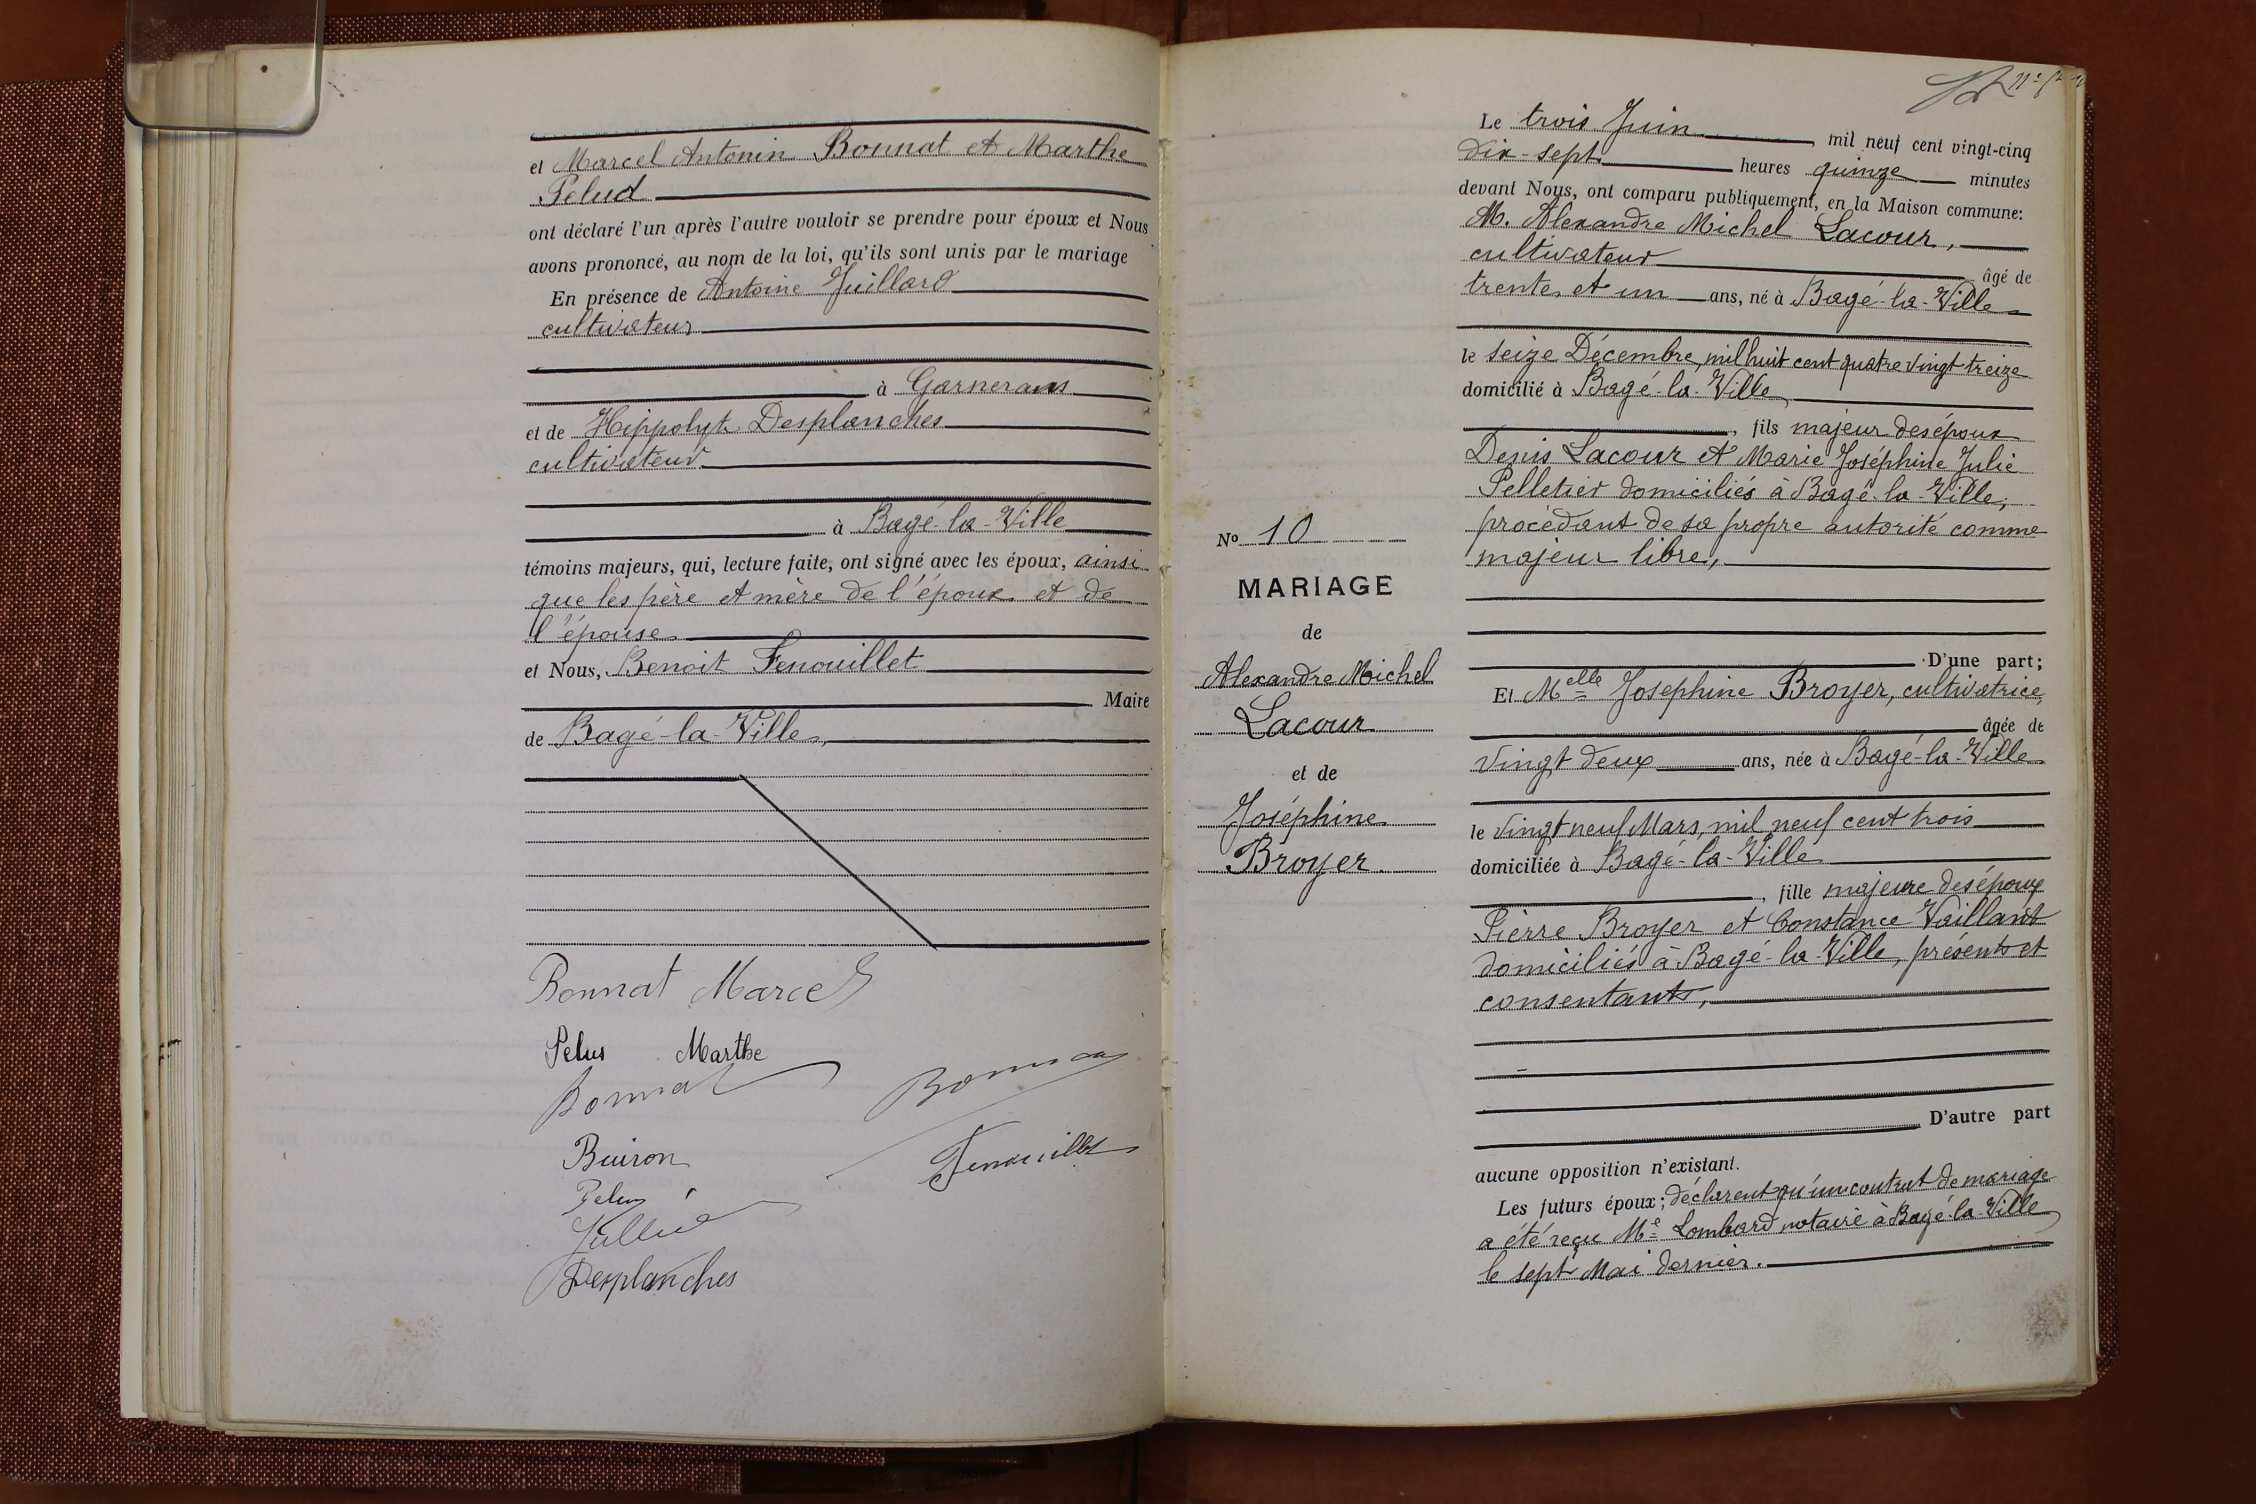 et Marcel Antonin Bonnat et Marthe
Pelud
ont déclaré l'un après l'autre vouloir se prendre pour époux et Nous
avons prononcé, au nom de la loi, qu'ils sont unis par le mariage
En présence de Antoine Juillard
cultivateur
à Garnerans
et de Hippolyte Desplanches
cultivateur
à Bagé-la-Ville
témoins majeurs, qui, lecture faite, ont signé avec les époux, ainsi
que les père et mère de l'époux et de
l'épouse
et Nous, Benoit Fenouillet
Maire
de Bagé-la-Ville,
Bonnat Marcel
Pelus Marthe
Bonnat
Buiron
Fenouillet
Desplanches
Le trois Juin mil neuf cent vingt-cinq
dix-sept heures quinze minutes
devant Nous, ont comparu publiquement, en la Maison commune:
M. Alexandre Michel Lacour,
cultivateur âgé de
trente et un ans, né à Bagé-la-Ville
le seize Décembre, mil huit cent quatre vingt treize
domicilié à Bagé-la-Ville
, fils majeur des époux
Denis Lacour et Marie Joséphine Julie
Pelletier domiciliés à Bagé-la-Ville,
procédant de sa propre autorité comme
majeur libre,
D'une part;
Et Melle Josephine Broyer, cultivatrice,
âgée de
vingt deux ans, née à Bagé-la-Ville
le vingt neuf Mars, mil neuf cent trois
domiciliée à Bagé-la-Ville
, fille majeure des époux
Pierre Broyer et Constance Vaillant
domiciliés à Bagé-la-Ville, présents et
consentants,
D'autre part
aucune opposition n'existant.
Les futurs époux; déclarent qu'un contrat de mariage
a été reçu Me Lombard notaire à Bagé-la-Ville
le sept Mai dernier.
No 10
MARIAGE
de
Alexandre Michel
Lacour
et de
Joséphine
Broyer